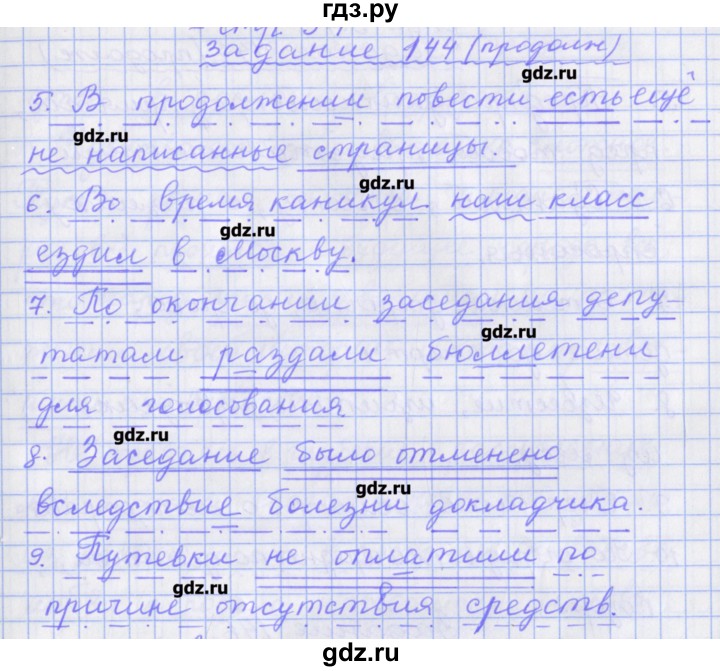 гдз.ру
задание 144 (продолж)
gdz.ru
5. В продолжении повести есть ещё
gdz.ru
не написанные страницы.
gdz.ru
6. Во время каникул наш класс
gdz.ru
ездил в Москву.
7. По окончании заседания депу-
gdz.ru
татам раздали бюллетени
для голосования
gdz.ru
8. Заседание было отменено
gdz.ru
вследствие болезни докладчика.
9. Путевки не оплатили по
gdz.ru
причине отсутствия средств.
гдз.ру